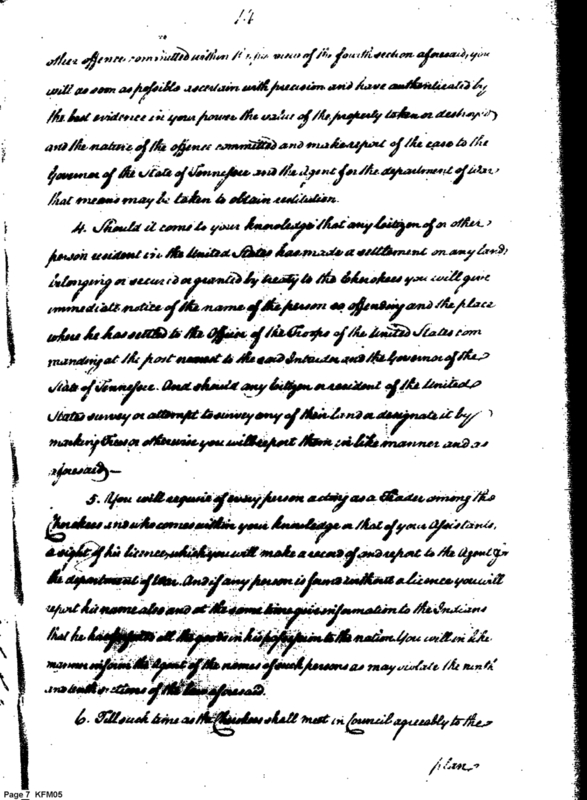 14
other offence committed within the purview of the fourth section aforesaid, you
will as soon as possible ascertain with precision and have authenticated by
the best evidence in your power the value of the property taken or destroyed
and the nature of the offence committed and make report of the case to the
Governor of the State of Tennessee and the Agent for the department of War
that means may be taken to obtain restitution.
4. Should it come to your knowledge that any Citizen of or other
person resident in the United States has made a settlement on any lands
belonging or secured or granted by treaty to the Cherokees you will give
immediate notice of the name of the person so offending and the place
where he has settled to the Officer of the Troops of the United States com
manding at the post nearest to the said Intruder and the Governor of the
State of Tennessee. And should any Citizen or resident of the United
States survey or attempt to survey any of their land or designate it by
marking Trees or otherwise you will report them in like manner and as
aforesaid —
5. You will require of every person acting as a Trader among the
Cherokees and who comes within your knowledge or that of your Assistants,
a sight of his licence, which you will make a record of and report to the Agent for
the department of War. And if any person is found without a licence you will
report his name also and at the same time give information to the Indians
that he has forfeited all the goods in his possession to the nation. You will in like
manner inform the Agent of the names of such persons as may violate the ninth
and tenth sections of the law aforesaid.
6. Till such time as the Cherokees shall meet in Council agreeably to the
plan
Page 7 KFM05